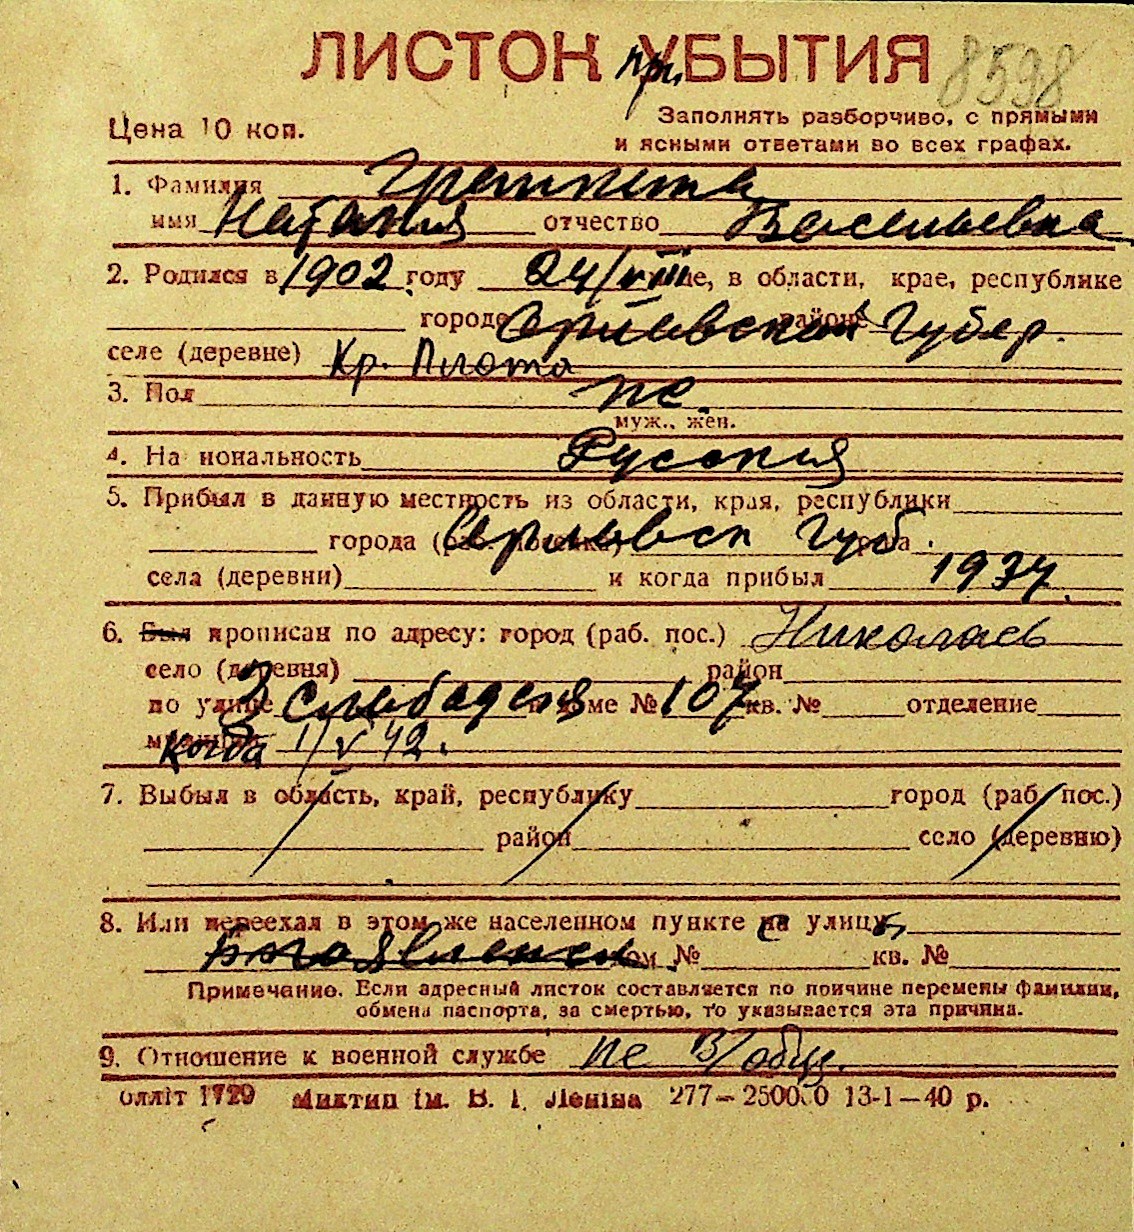 ЛИСТОК при УБЫТИЯ 8598
Цена 10 коп. Заполнять разборчиво, с прямыми
и ясными ответами во всех графах.
1. Фамилия
имя Наталия отчество Васильевна
2. Родился в 1902 году 24/VIII де, в области, крае, республике
городе районе Губер.
селе (деревне) Кр. Плота
3. Пол ж.
муж., жен.
4. На иональность Русская
5. Прибыл в данную местность из области, края, республики
города Губ.
села (деревни) и когда прибыл 1934
6. Был прописан по адресу: город (раб. пос.) Николаев
село (деревня) район
по улице 3 Слободская доме № 107 кв. № отделение
когда 1/V 42.
7. Выбыл в область, край, республику город (раб. пос.)
район село (деревню)
8. Или переехал в этом же населенном пункте на улицу
Богоявленск дом № кв. №
Примечание. Если адресный листок составляется по причине перемены фамилии,
обмена паспорта, за смертью, то указывается эта причина.
9. Отношение к военной службе не в/обяз.
олліт 1729 Миктип ім. В. І. Леніна 277—250000 13-1—40 р.